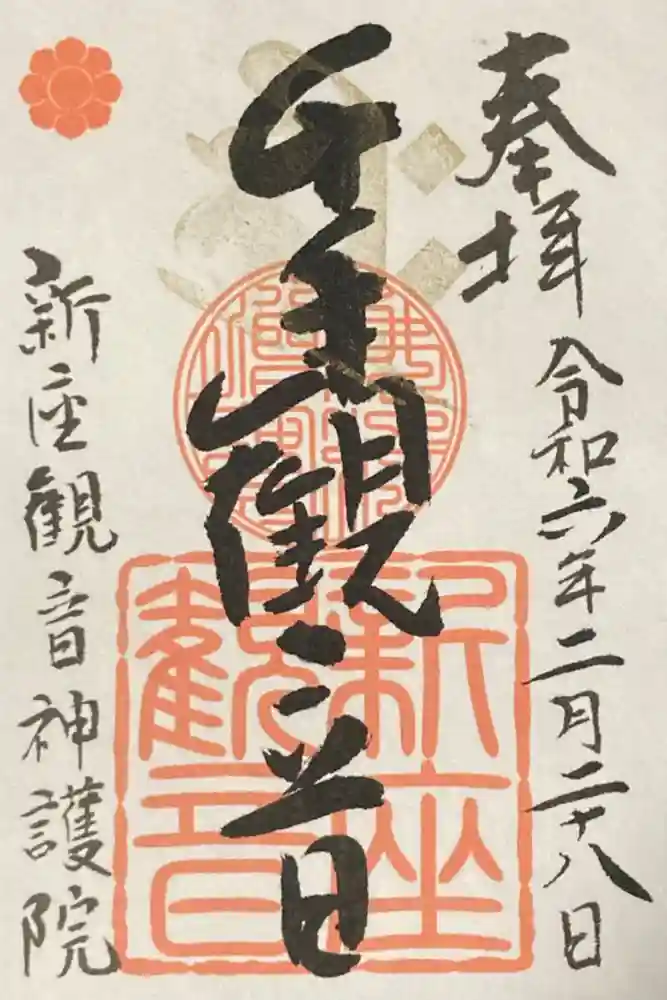 奉拝
令和六年二月二十八日
聖觀音
新座観音神護院
新座
観音
佛法僧寶